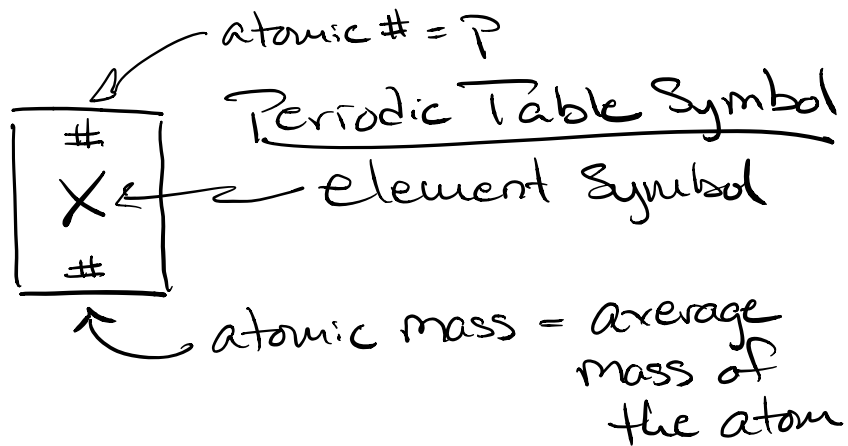 atomic # = P
Periodic Table Symbol
#
X
element symbol
#
atomic mass = average
mass of
the atom